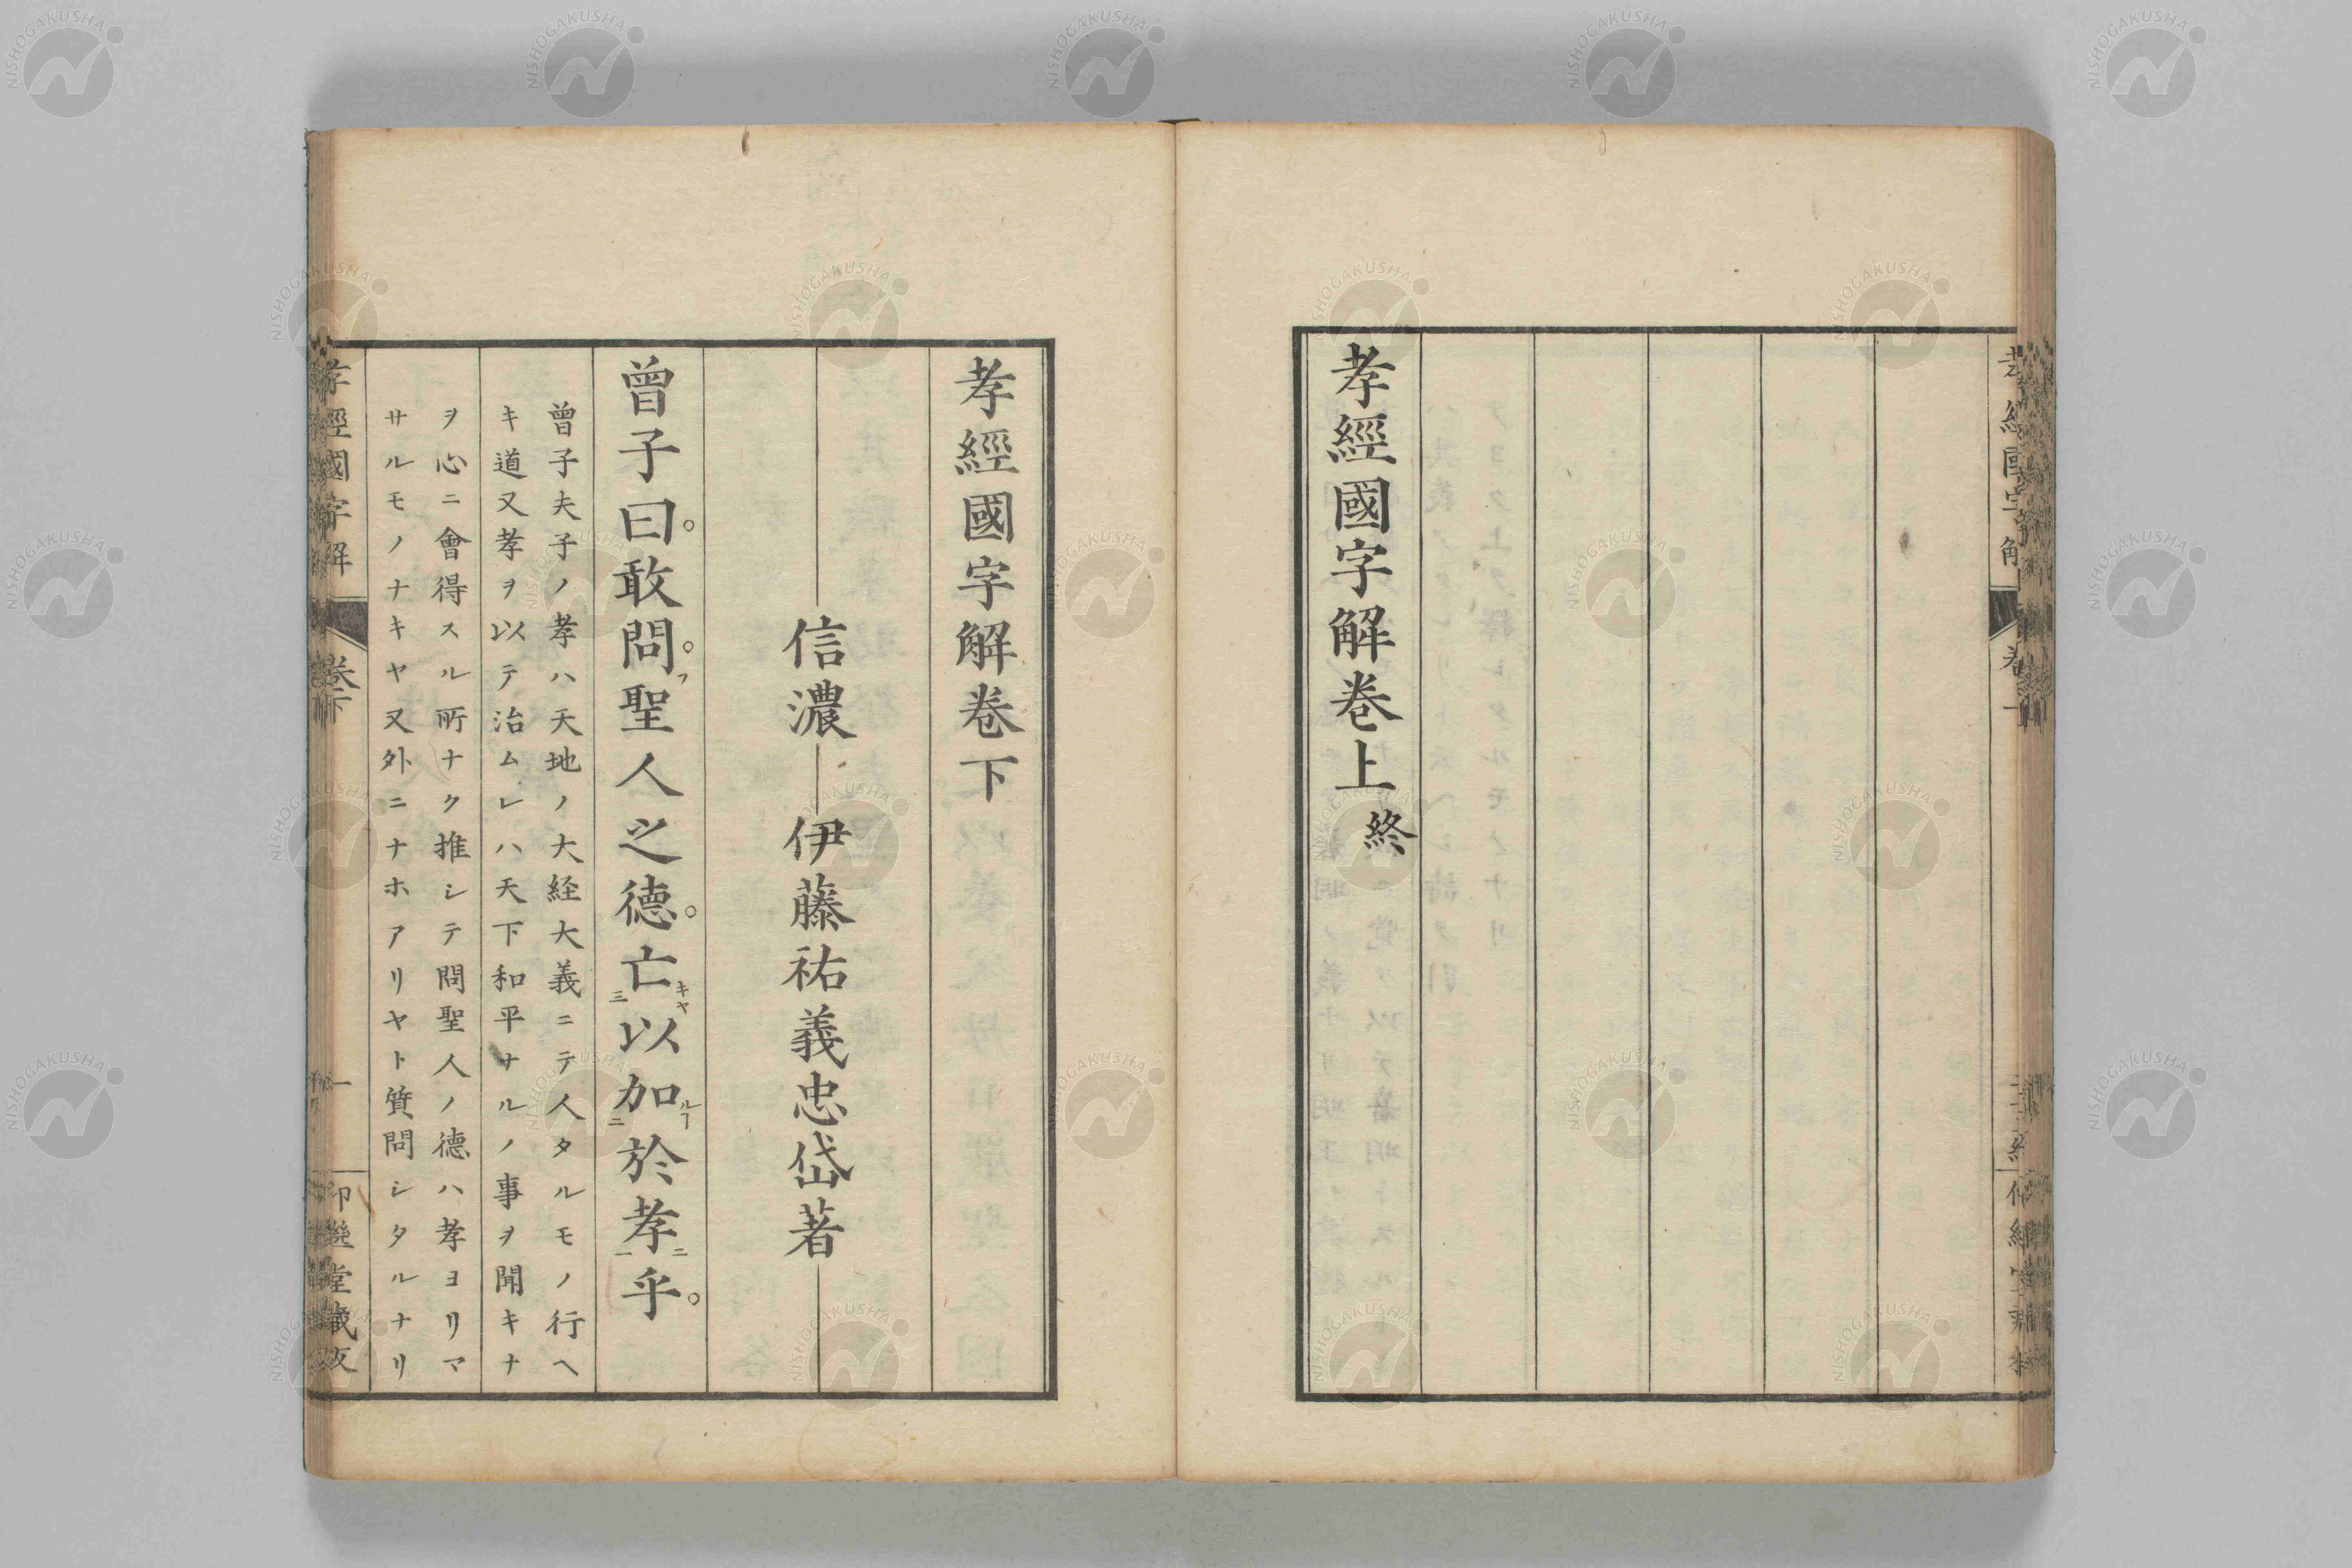 孝經國字解卷上終
孝經國字解卷下
信濃 伊藤祐義忠岱著
曾子曰敢問フ聖人之德亡キヤ三以加ルヿ二於孝一ニ乎
曾子夫子ノ孝ハ天地ノ大経大義ニテ人タルモノノ行ヘ
キ道又孝ヲ以テ治ムレハ天下和平ナルノ事ヲ聞キナ
ヲ心ニ會得スル所ナク推シテ問聖人ノ德ハ孝ヨリマ
サルモノナキヤ又外ニナホアリヤト質問シタルナリ
孝經國字解 卷下 一
NISHOGAKUSHA